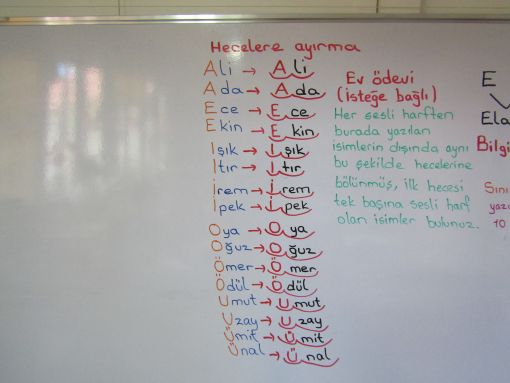 Hecelere ayırma
Ali → A li
Ada → A da
Ece → E ce
Ekin → E kin
Işık → I şık
Itır → I tır
İrem → İ rem
İpek → İ pek
Oya → O ya
Oğuz → O ğuz
Ömer → Ö mer
Ödül → Ö dül
Umut → U mut
Uzay → U zay
Ümit → Ü mit
Ünal → Ü nal
Ev ödevi
(isteğe bağlı)
Her sesli harften
burada yazılan
isimlerin dışında aynı
bu şekilde hecelerine
bölünmüş, ilk hecesi
tek başına sesli harf
olan isimler bulunuz.
E
Ela
Bilgi
Sını
yazı
10